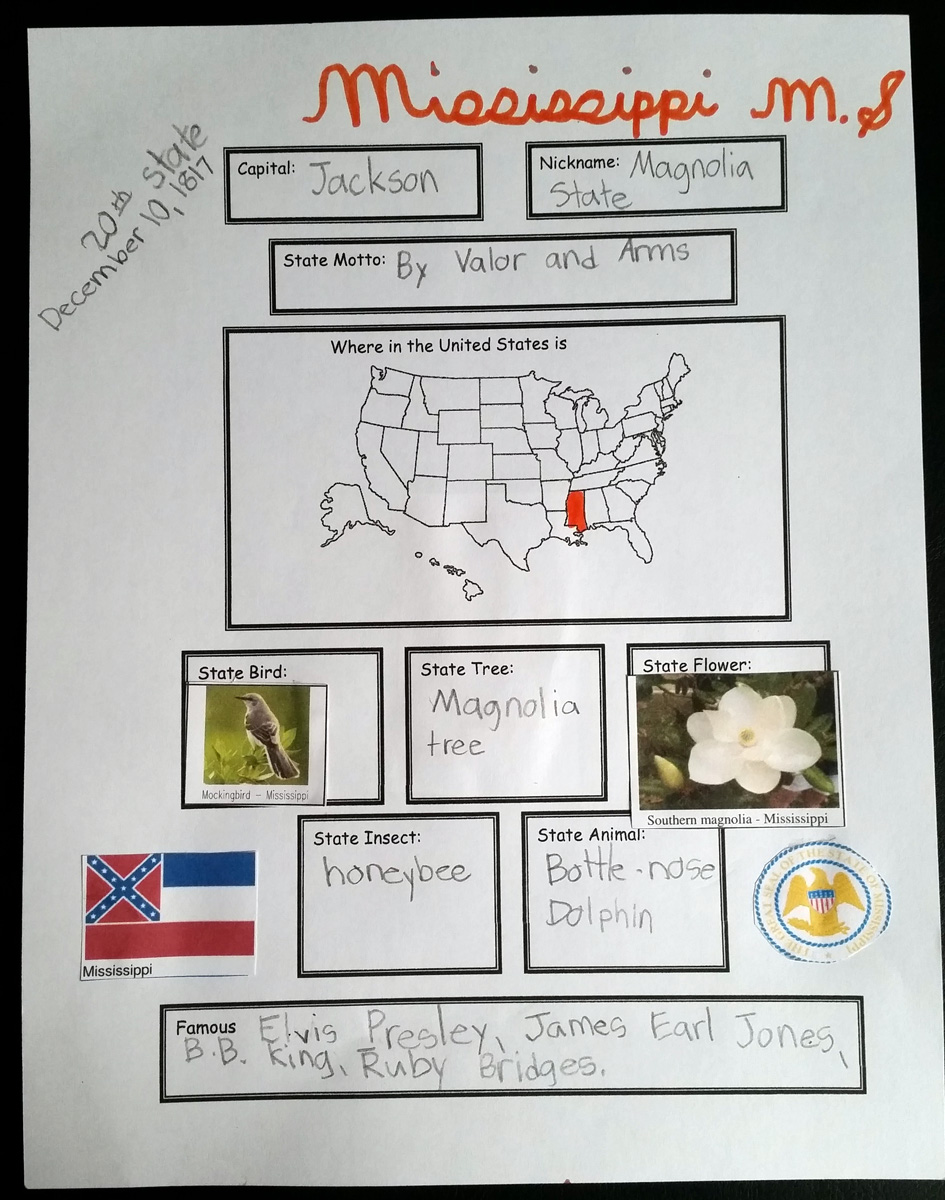 Mississippi M.S
20th State
December 10, 1817
Capital: Jackson
Nickname: Magnolia
State
State Motto: By Valor and Arms
Where in the United States is
State Bird:
Mockingbird - Mississippi
State Tree:
Magnolia
tree
State Flower:
Southern magnolia - Mississippi
State Insect:
honeybee
State Animal:
Bottle-nose
Dolphin
Mississippi
THE GREAT SEAL OF THE STATE OF MISSISSIPPI
Famous Elvis Presley, James Earl Jones,
B.B. King, Ruby Bridges.